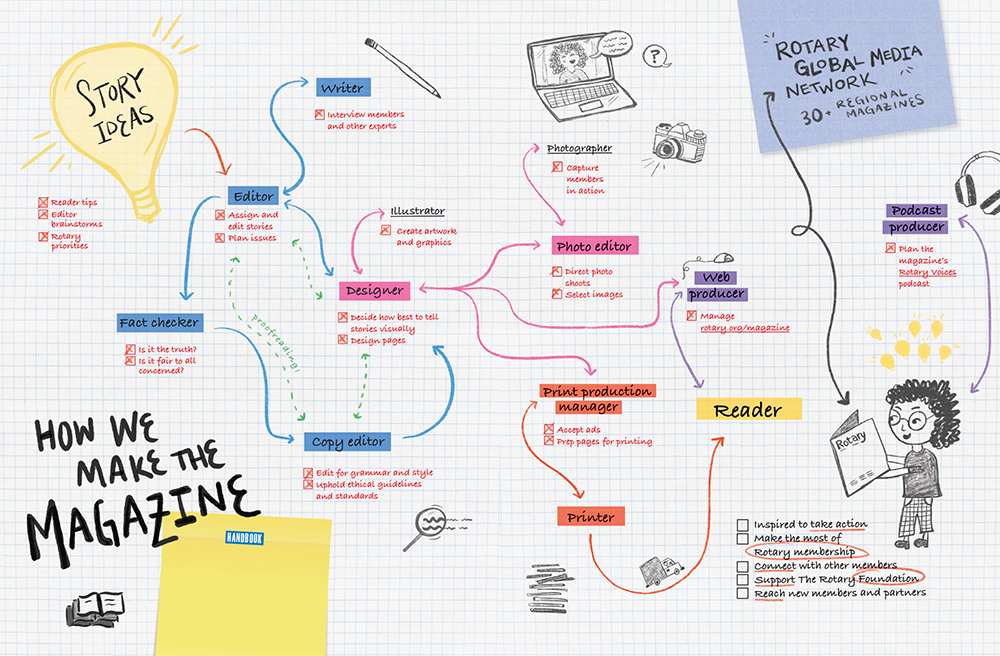 STORY
IDEAS
Reader tips
Editor
brainstorms
Rotary
priorities
Writer
Interview members
and other experts
Editor
Assign and
edit stories
Plan issues
Illustrator
Create artwork
and graphics
Designer
Decide how best to tell
stories visually
Design pages
Fact checker
Is it the truth?
Is it fair to all
concerned?
proofreading!
Copy editor
Edit for grammar and style
Uphold ethical guidelines
and standards
?
Photographer
Capture
members
in action
Photo editor
Direct photo
shoots
Select images
Web
producer
Manage
rotary.org/magazine
Print production
manager
Accept ads
Prep pages for printing
Printer
Reader
"ROTARY
GLOBAL MEDIA
NETWORK"
30+ REGIONAL
MAGAZINES
Podcast
producer
Plan the
magazine's
Rotary Voices
podcast
Rotary
Inspired to take action
Make the most of
Rotary membership
Connect with other members
Support The Rotary Foundation
Reach new members and partners
HOW WE
MAKE THE
MAGAZINE
HANDBOOK